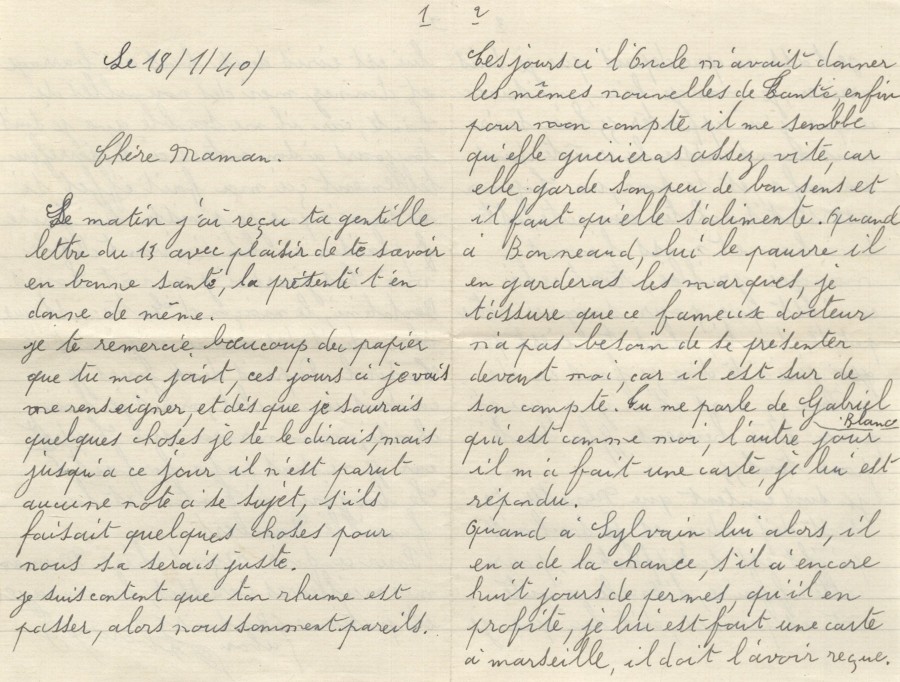 1
Le 18/1/40/
Chère Maman.
Le matin j'ai reçu ta gentille
lettre du 13 avec plaisir de te savoir
en bonne santé, la présenté t'en
donne de même.
je te remercie beaucoup du papier
que tu ma joint, ces jours ci je vais
me renseigner, et dés que je saurais
quelques choses je te le dirais, mais
jusqu'a ce jour il n'est parut
aucune note a se sujet, s'ils
faisait quelques choses pour
nous sa serais juste.
je suis content que ton rhume est
passer, alors nous somment pareils.
2
Ces jours ci l'Oncle m'avait donner
les mêmes nouvelles de Santé, enfin
pour mon compte il me semble
qu'elle guérieras assez vite, car
elle garde son peu de bon sens et
il faut qu'elle s'alimente. Quand
à Bonneaud, lui le pauvre il
en garderas les marques, je
t'assure que ce fameux docteur
n'a pas besoin de se présenter
devant moi, car il est sur de
son compte. Tu me parle de Gabriel
Blanc
qui est comme moi, l'autre jour
il m'a fait une carte, je lui est
répondu.
Quand à Sylvain lui alors, il
en a de la chance, s'il à encore
huit jours de permes, qu'il en
profite, je lui est fait une carte
à marseille, il doit l'avoir reçue.